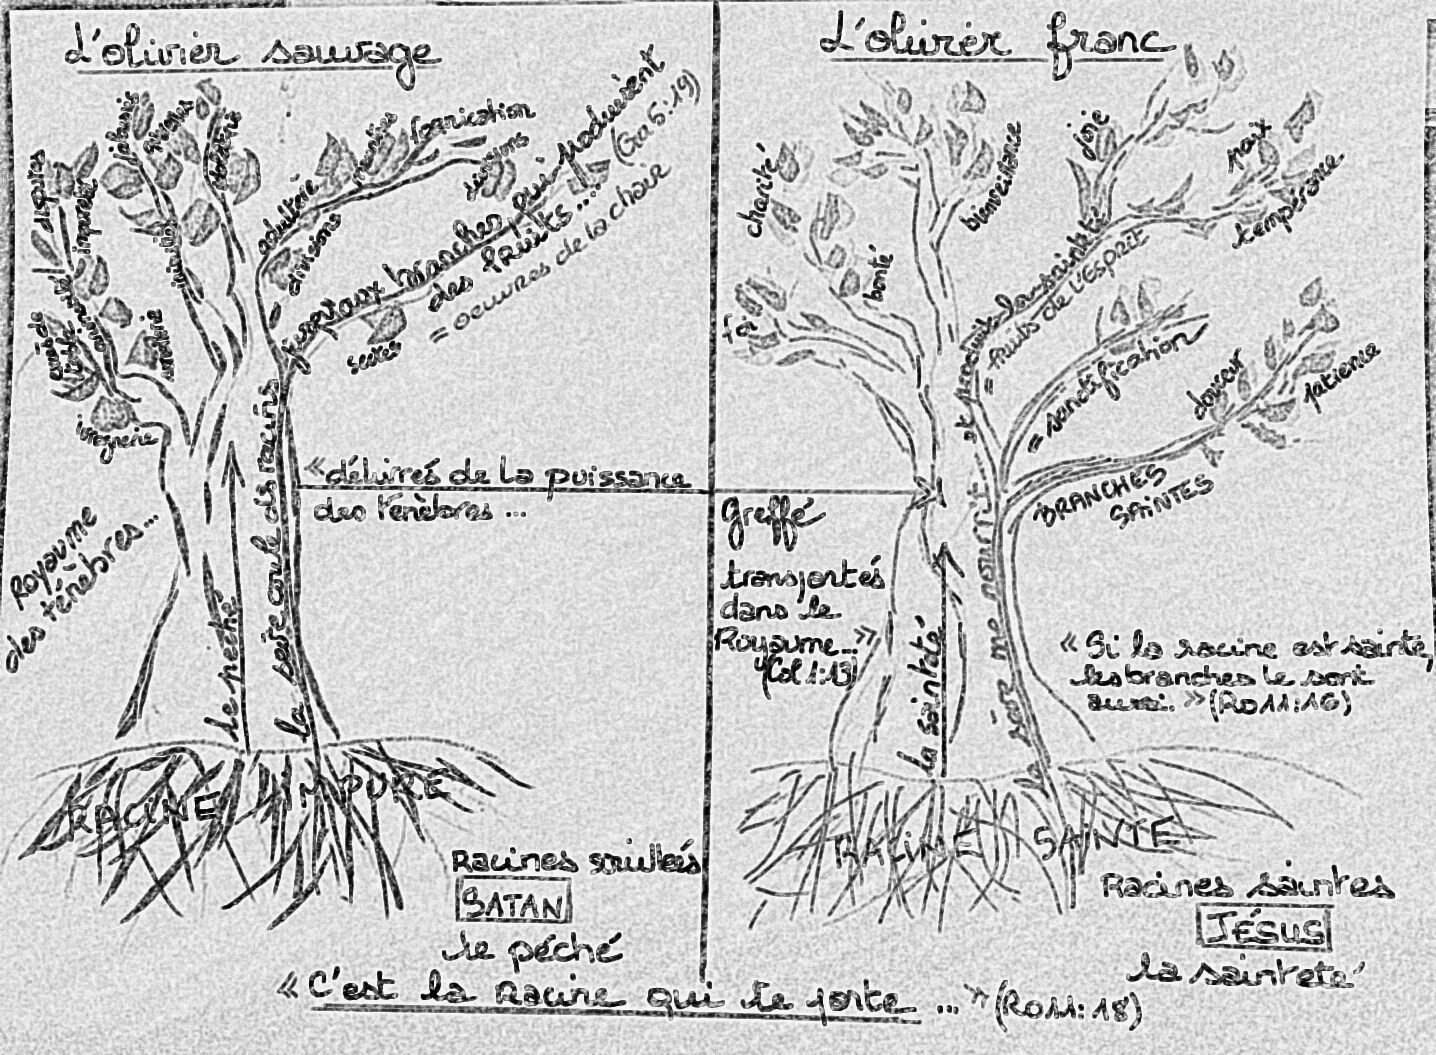 L'olivier sauvage
disputes
impureté
jalousie
idolâtrie
adultère
meurtres
fornication
divisions
divisions
inimitiés
animosités
ivrognerie
sectes
jusqu'aux branches qui produisent
des fruits... (Ga 5:19)
= oeuvres de la chair
Royaume
des ténèbres...
le péché
la sève coule des racines
« délivrés de la puissance
des ténèbres ...
RACINE IMPURE
Racines souillées
SATAN
le péché
L'olivier franc
charité
bienveillance
joie
paix
tempérance
bonté
foi
et produit la sainteté
= fruits de l'Esprit
= sanctification
douceur
patience
BRANCHES
SAINTES
Greffé
transportés
dans le
Royaume... »
(Col 1:13)
la sainteté
sève me nourrit
« Si la racine est sainte,
les branches le sont
aussi. » (Ro 11:16)
RACINE SAINTE
Racines saintes
JÉSUS
la sainteté
« C'est la Racine qui te porte ... » (Ro 11:18)